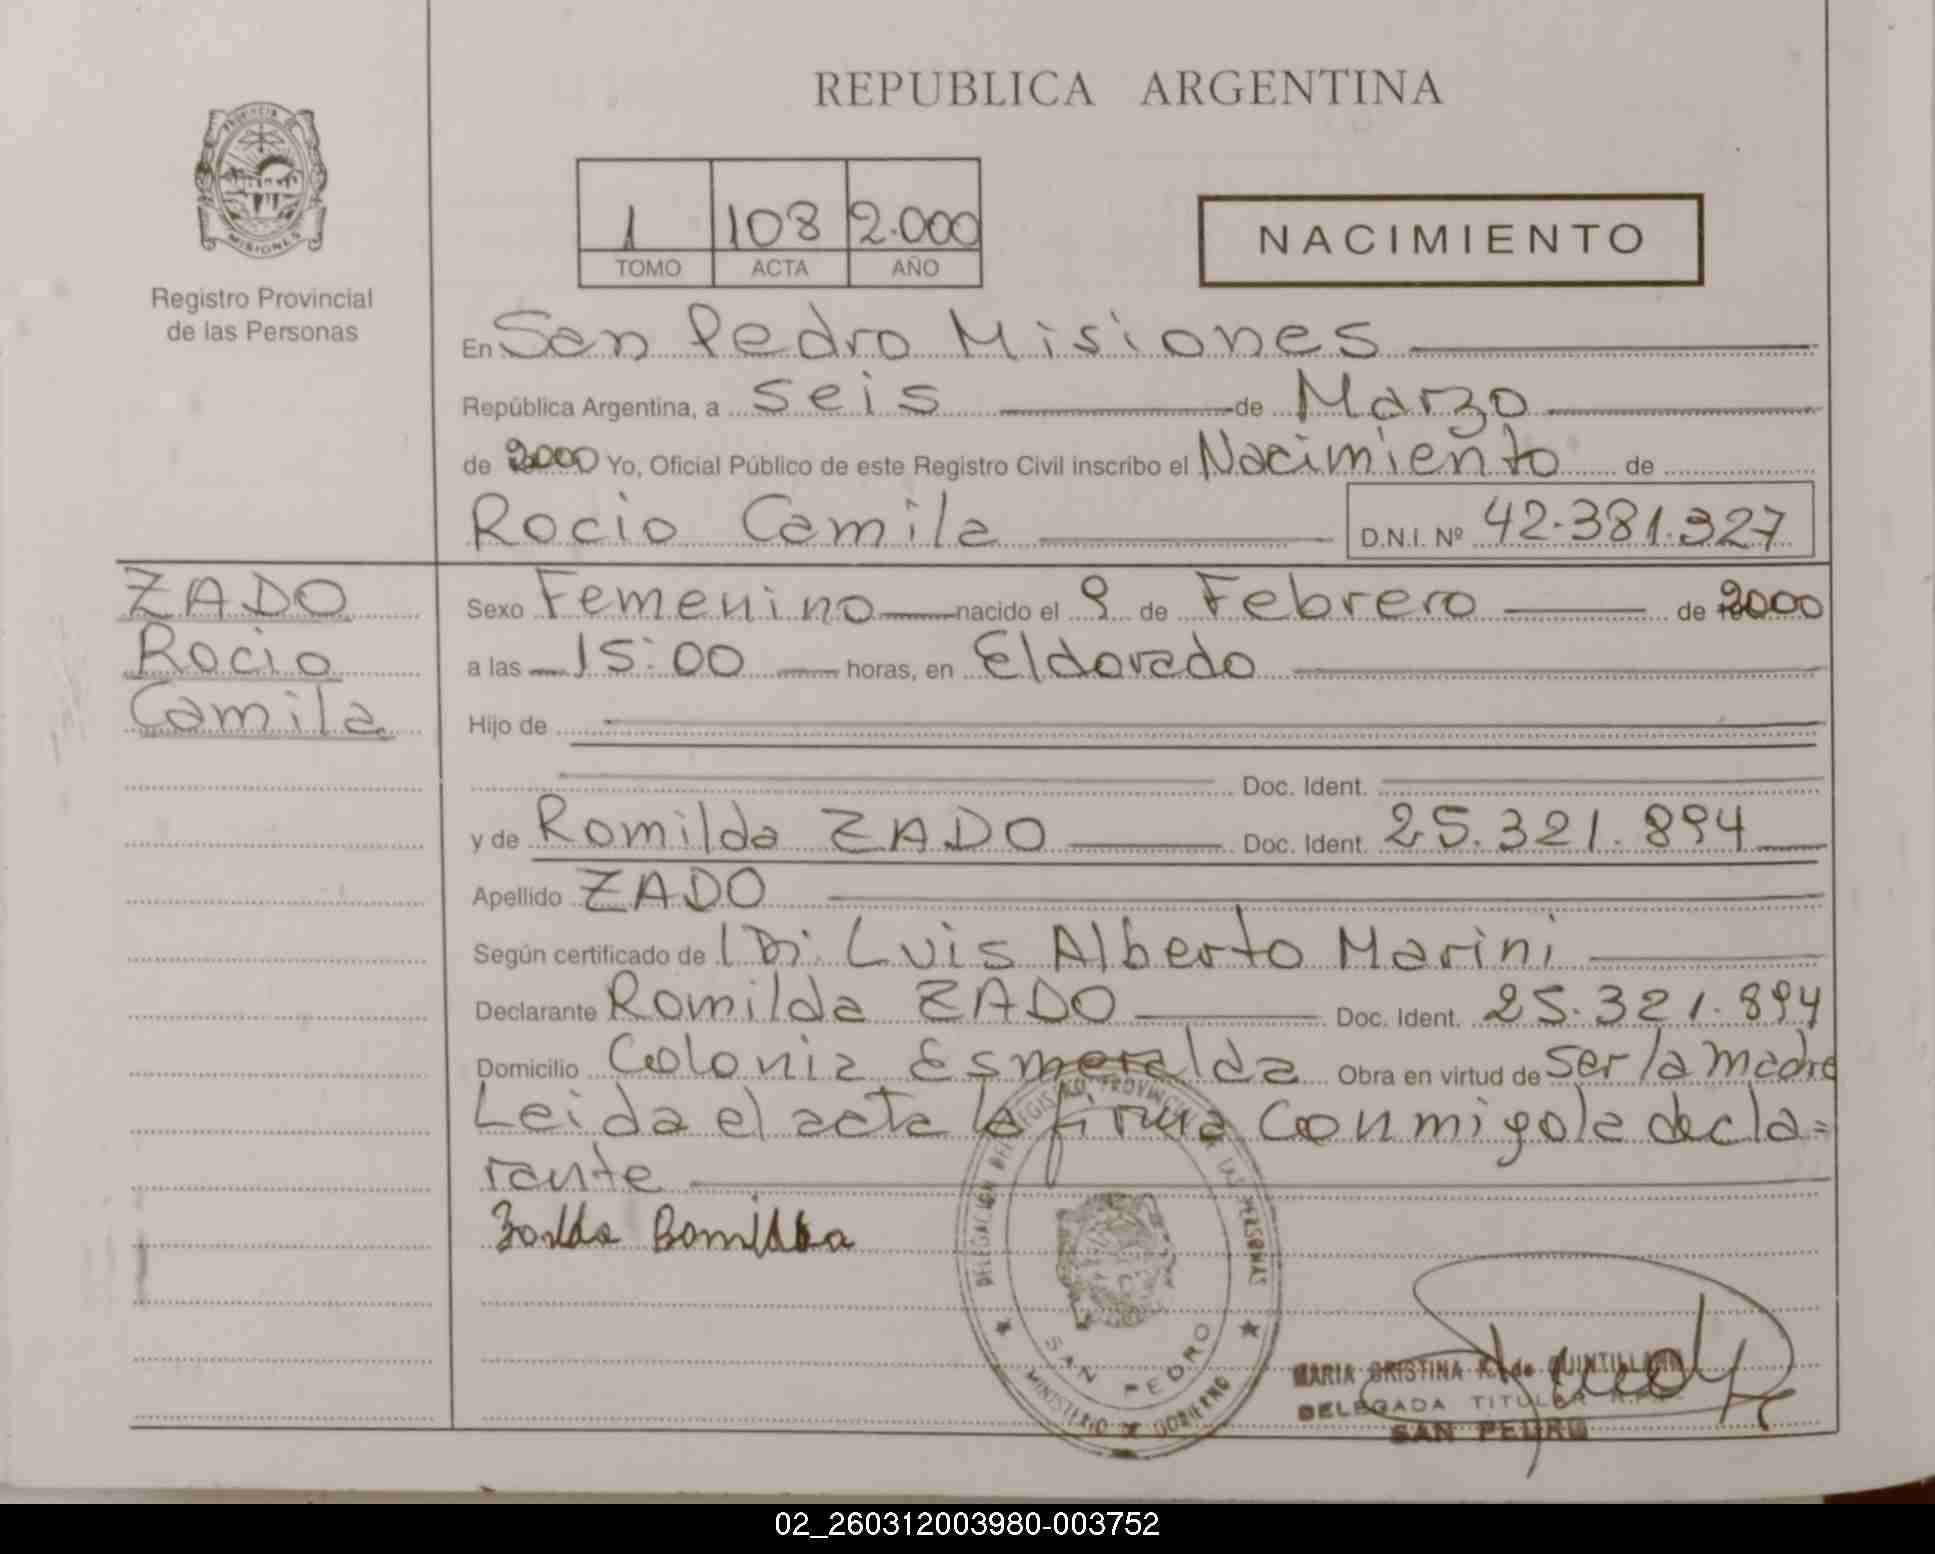 REPUBLICA ARGENTINA
PROVINCIA DE
MISIONES
Registro Provincial
de las Personas
1 108 2.000
TOMO ACTA AÑO
NACIMIENTO
En San Pedro Misiones
República Argentina, a seis de Marzo
de 2000 Yo, Oficial Público de este Registro Civil inscribo el Nacimiento de
Rocio Camila D.N.I. Nº 42.381.327
ZADO
Rocio
Camila
Sexo Femenino nacido el 9 de Febrero de 2000
a las 15:00 horas, en Eldorado
Hijo de
Doc. Ident.
y de Romilda ZADO Doc. Ident. 25.321.894
Apellido ZADO
Según certificado de Luis Alberto Marini
Declarante Romilda ZADO Doc. Ident. 25.321.894
Domicilio Colonia Esmeralda Obra en virtud de ser la madre
Leida el acta la firma conmigo la decla=
rante
DELEGACIÓN DEL REGISTRO PROVINCIAL DE LAS PERSONAS
SAN PEDRO
MINISTERIO DE GOBIERNO
MARIA CRISTINA de
DELEGADA TITULAR
SAN PEDRO
02_260312003980-003752